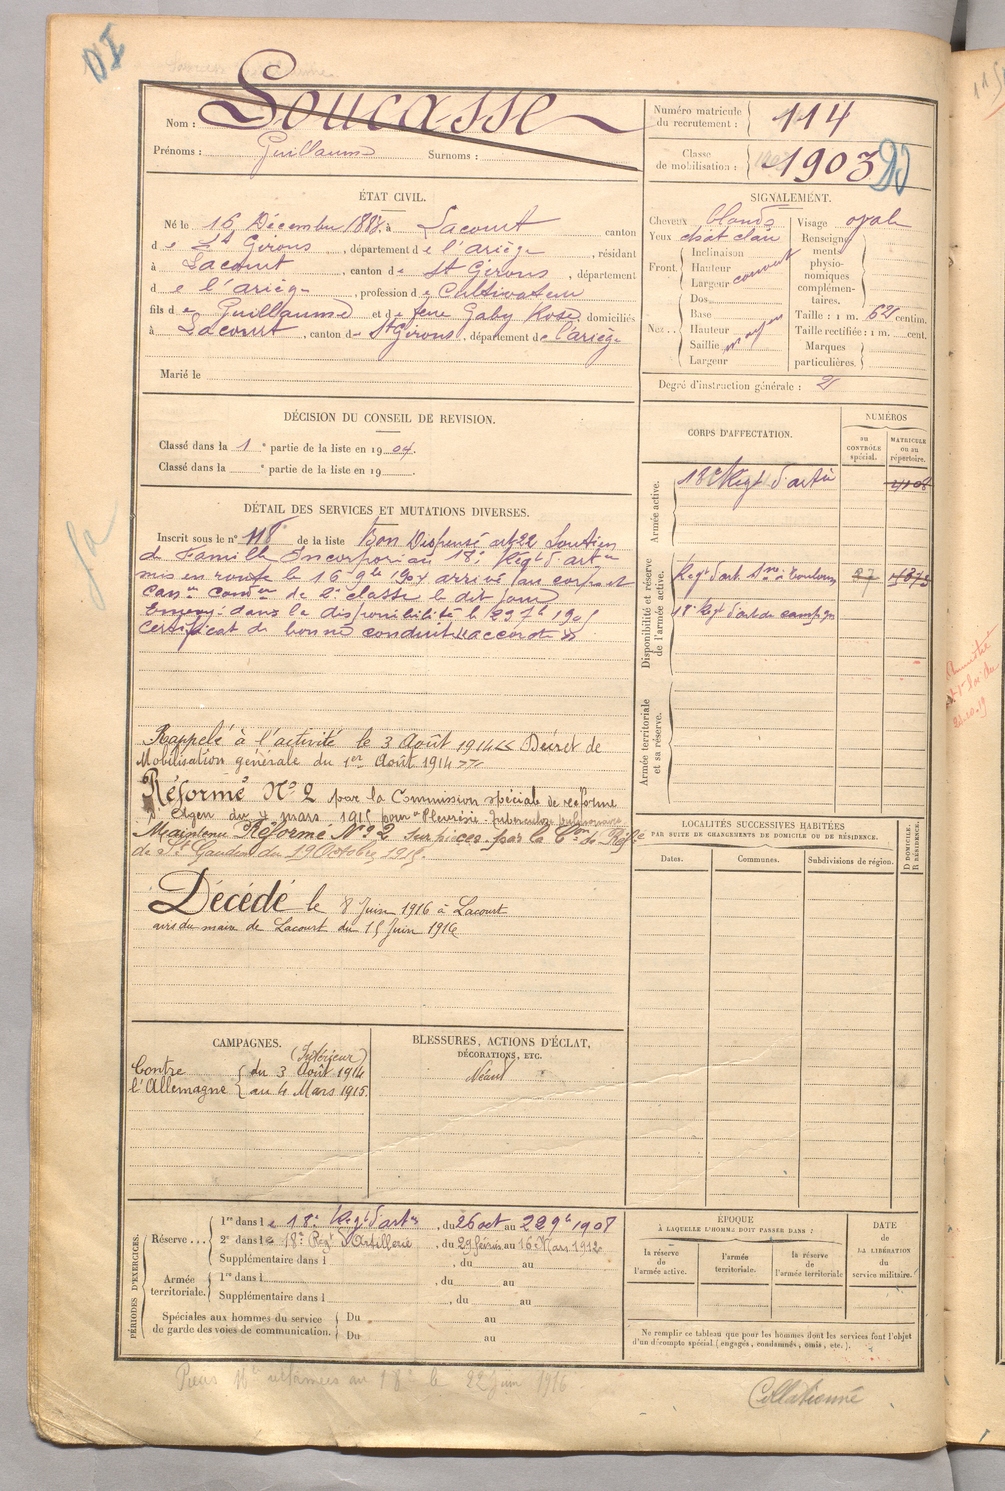 Nom : Soucasse
Prénoms : Guillaume Surnoms :
Numéro matricule du recrutement : 114
Classe de mobilisation : 1903
ÉTAT CIVIL.
Né le 16 Décembre à Lacourt canton
de St Girons, département de l'ariège, résidant
à Lacourt, canton de St Girons, département
de l'ariège, profession de Cultivateur
fils de Guillaume et de feue Gaby Rose domiciliés
à Lacourt, canton de St Girons, département de l'ariège
Marié le
SIGNALEMENT.
Cheveux blonds
Yeux chat clair
Front. Inclinaison
Hauteur
Largeur couvert
Nez... Dos
Base
Hauteur
Saillie moyen
Largeur
Visage oval
Renseignements physionomiques complémentaires.
Taille : 1 m. 62 centim.
Taille rectifiée : 1 m. cent.
Marques particulières.
Degré d'instruction générale : 2
DÉCISION DU CONSEIL DE REVISION.
Classé dans la 1e partie de la liste en 1904.
Classé dans la e partie de la liste en 19 .
DÉTAIL DES SERVICES ET MUTATIONS DIVERSES.
Inscrit sous le n° de la liste Bon Dispensé art 22 Soutien
de Famille Incorporé au 18e Régt d'art
mis en route le 16 9bre arrivé au corps et
can. cond. de 2e classe le dit jour
dans la disponibilité le
certificat de bonne conduite accordé
Rappelé à l'activité le 3 Août 1914 << Décret de
Mobilisation générale du 1er Août 1914 >>
Réformé N° 2 par la Commission spéciale de réforme
d'Agen du 4 mars 1915 pour Pleurésie. Tuberculose pulmonaire
Maintenu Réformé N° 2 sur pièces par la Con de Réfe
de St Gaudens du 19 Octobre 1915.
Décédé le 8 Juin 1916 à Lacourt
avis du maire de Lacourt du 15 Juin 1916
CORPS D'AFFECTATION.
NUMÉROS
au CONTRÔLE spécial.
MATRICULE ou au répertoire.
Armée active.
18e Régt d'art
Disponibilité et réserve de l'armée active.
Régt d'art à Toulouse
18e Régt d'art de campgne
Armée territoriale et sa réserve.
LOCALITÉS SUCCESSIVES HABITÉES
PAR SUITE DE CHANGEMENTS DE DOMICILE OU DE RÉSIDENCE.
Dates. Communes. Subdivisions de région. D DOMICILE. R RÉSIDENCE.
CAMPAGNES.
(Intérieur)
Contre du 3 Août 1914
l'Allemagne au 4 Mars 1915.
BLESSURES, ACTIONS D'ÉCLAT,
DÉCORATIONS, ETC.
Néant
PÉRIODES D'EXERCICES.
Réserve... 1re dans le 18e Régt d'arte, du 26 oct au 22 9bre 1908
2e dans le 18e Régt d'Artillerie, du 29 février au 16 Mars 1912
Supplémentaire dans l , du au
Armée territoriale. 1re dans l , du au
Supplémentaire dans l , du au
Spéciales aux hommes du service de garde des voies de communication. Du au
Du au
ÉPOQUE
À LAQUELLE L'HOMME DOIT PASSER DANS :
la réserve de l'armée active.
l'armée territoriale.
la réserve de l'armée territoriale
DATE DE LA LIBÉRATION du service militaire.
Ne remplir ce tableau que pour les hommes dont les services font l'objet
d'un décompte spécial (engagés, condamnés, omis, etc.).
au 18e le 22 Juin 1916
Collationné